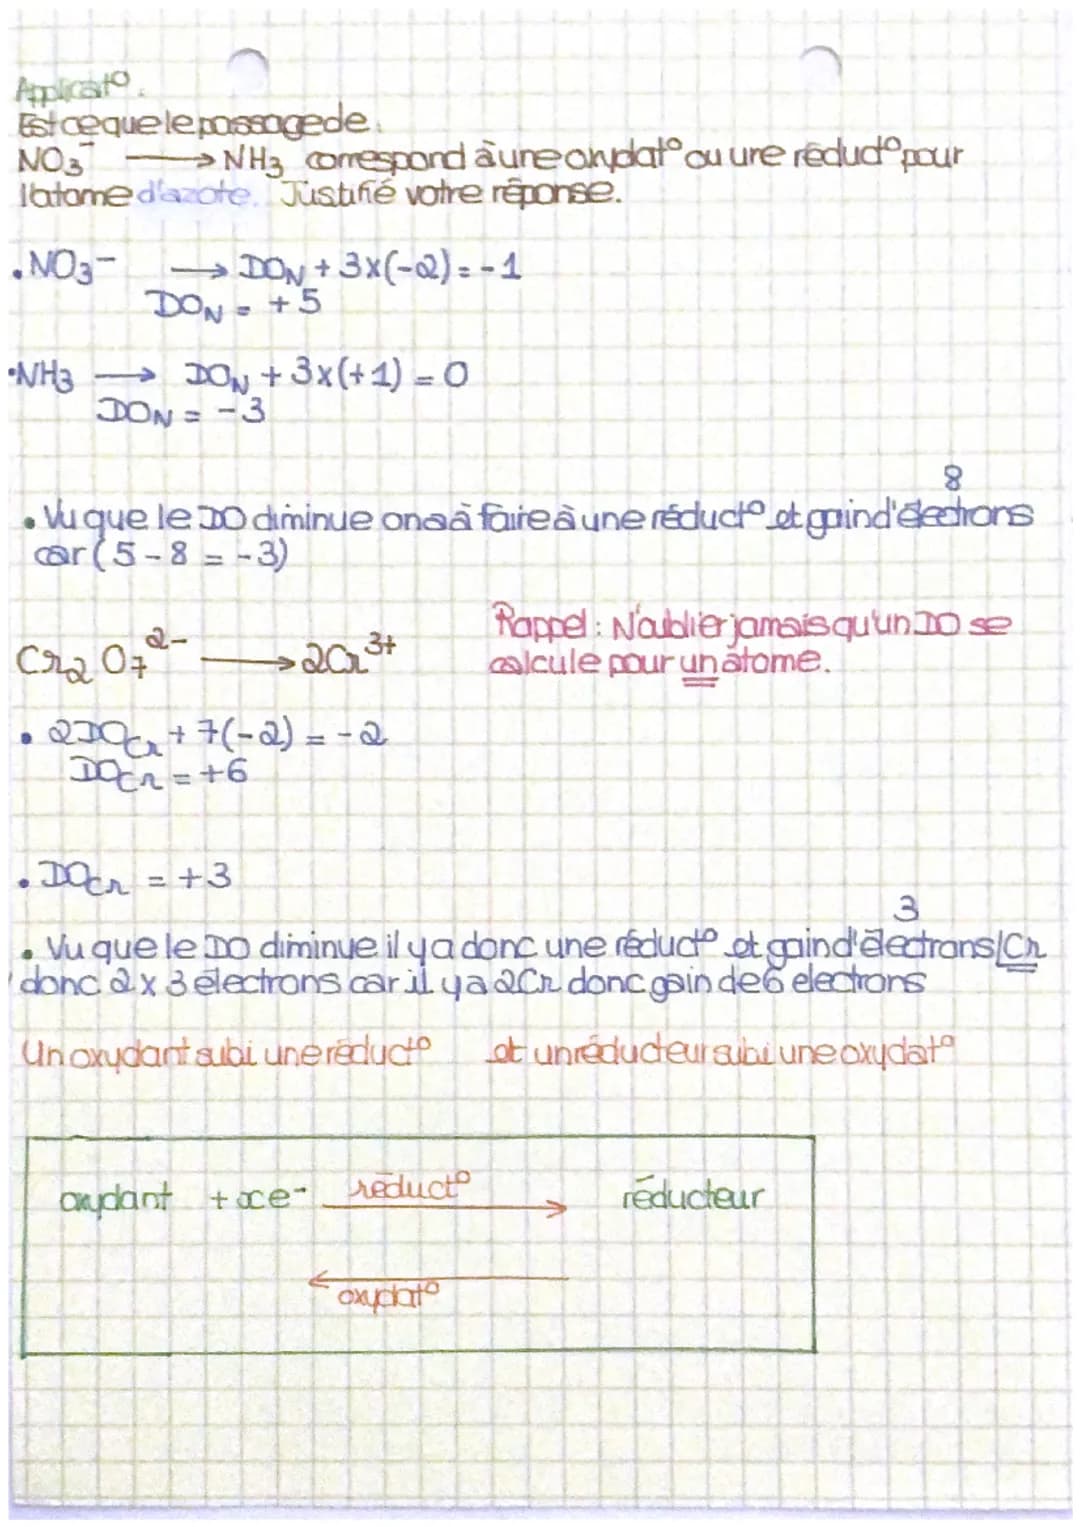 Applicat°.
Est ce que le passage de.
NO₃⁻ ⟶ NH₃ correspond à une oxydat° ou une réduct° pour
l'atome d'azote. Justifié votre réponse.
• NO₃⁻ ⟶ DO_N + 3x(-2) = -1
DO_N = +5
• NH₃ ⟶ DO_N + 3x(+1) = 0
DO_N = -3
8
• Vu que le DO diminue on a à faire à une réduct° et gain d'électrons
car (5-8 = -3)
Cr₂O₇²⁻ ⟶ 2Cr³⁺
Rappel : N'oublier jamais qu'un DO se
calcule pour un atome.
• 2DO_Cr + 7(-2) = -2
DO_Cr = +6
• DO_Cr = +3
3
• Vu que le DO diminue il y a donc une réduct° et gain d'électrons/Cr
donc 2 x 3 électrons car il y a 2Cr donc gain de 6 electrons
Un oxydant subi une réduct° et un réducteur subi une oxydat°
oxydant + xe⁻ réduct° ⟶ réducteur
⟵ oxydat°